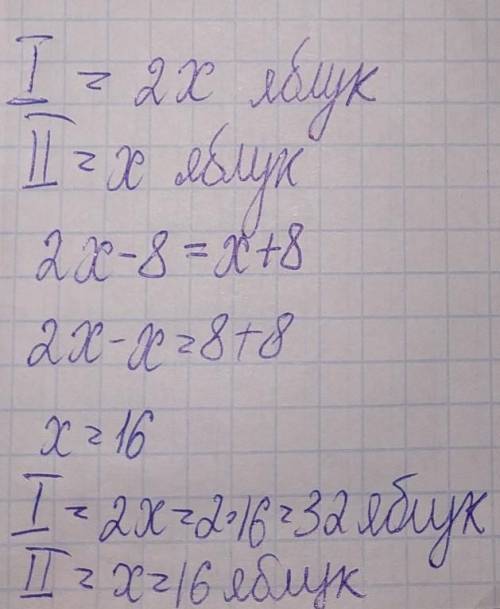 I = 2x яблук
II = x яблук
2x - 8 = x + 8
2x - x = 8 + 8
x = 16
I = 2x = 2·16 = 32 яблук
II = x = 16 яблук